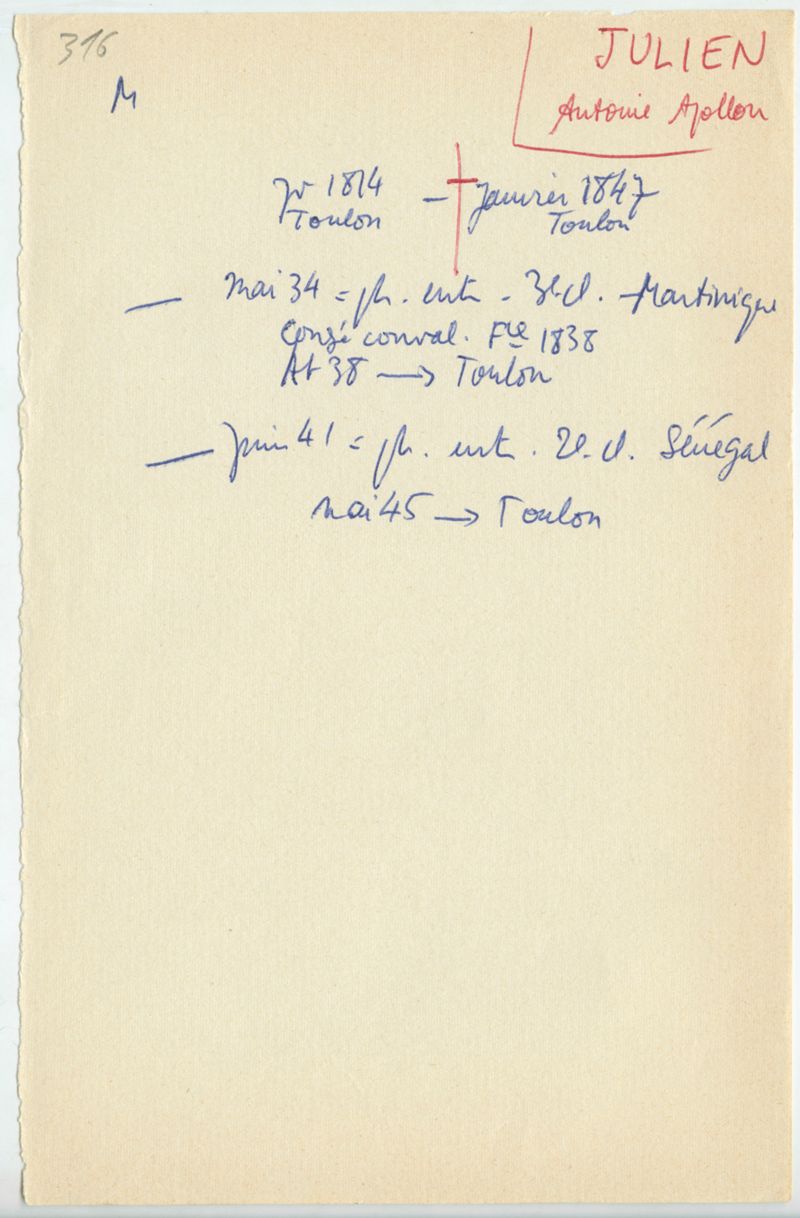 316
JULIEN
Antoine Apollon
M
Jr 1814 — Janvier 1847
Toulon Toulon
— Mai 34 = ph. ent. - 3e cl. - Martinique
Congé conval. Fce 1838
At 38 → Toulon
— Juin 41 = ph. ent. 2e cl. Sénégal
Mai 45 → Toulon